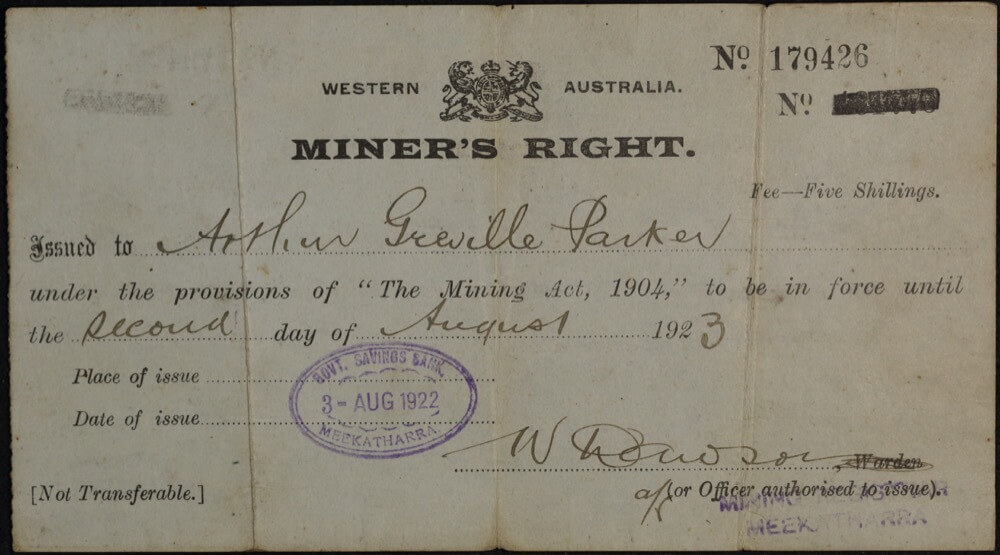 No. 179426
WESTERN AUSTRALIA.
No.
MINER'S RIGHT.
Fee—Five Shillings.
Issued to Arthur Greville Parker
under the provisions of "The Mining Act, 1904," to be in force until
the second day of August 1923
Place of issue
GOVT. SAVINGS BANK.
3 - AUG 1922
MEEKATHARRA
Date of issue
Warden
[Not Transferable.]
(or Officer authorised to issue).
MINING REGISTRAR
MEEKATHARRA